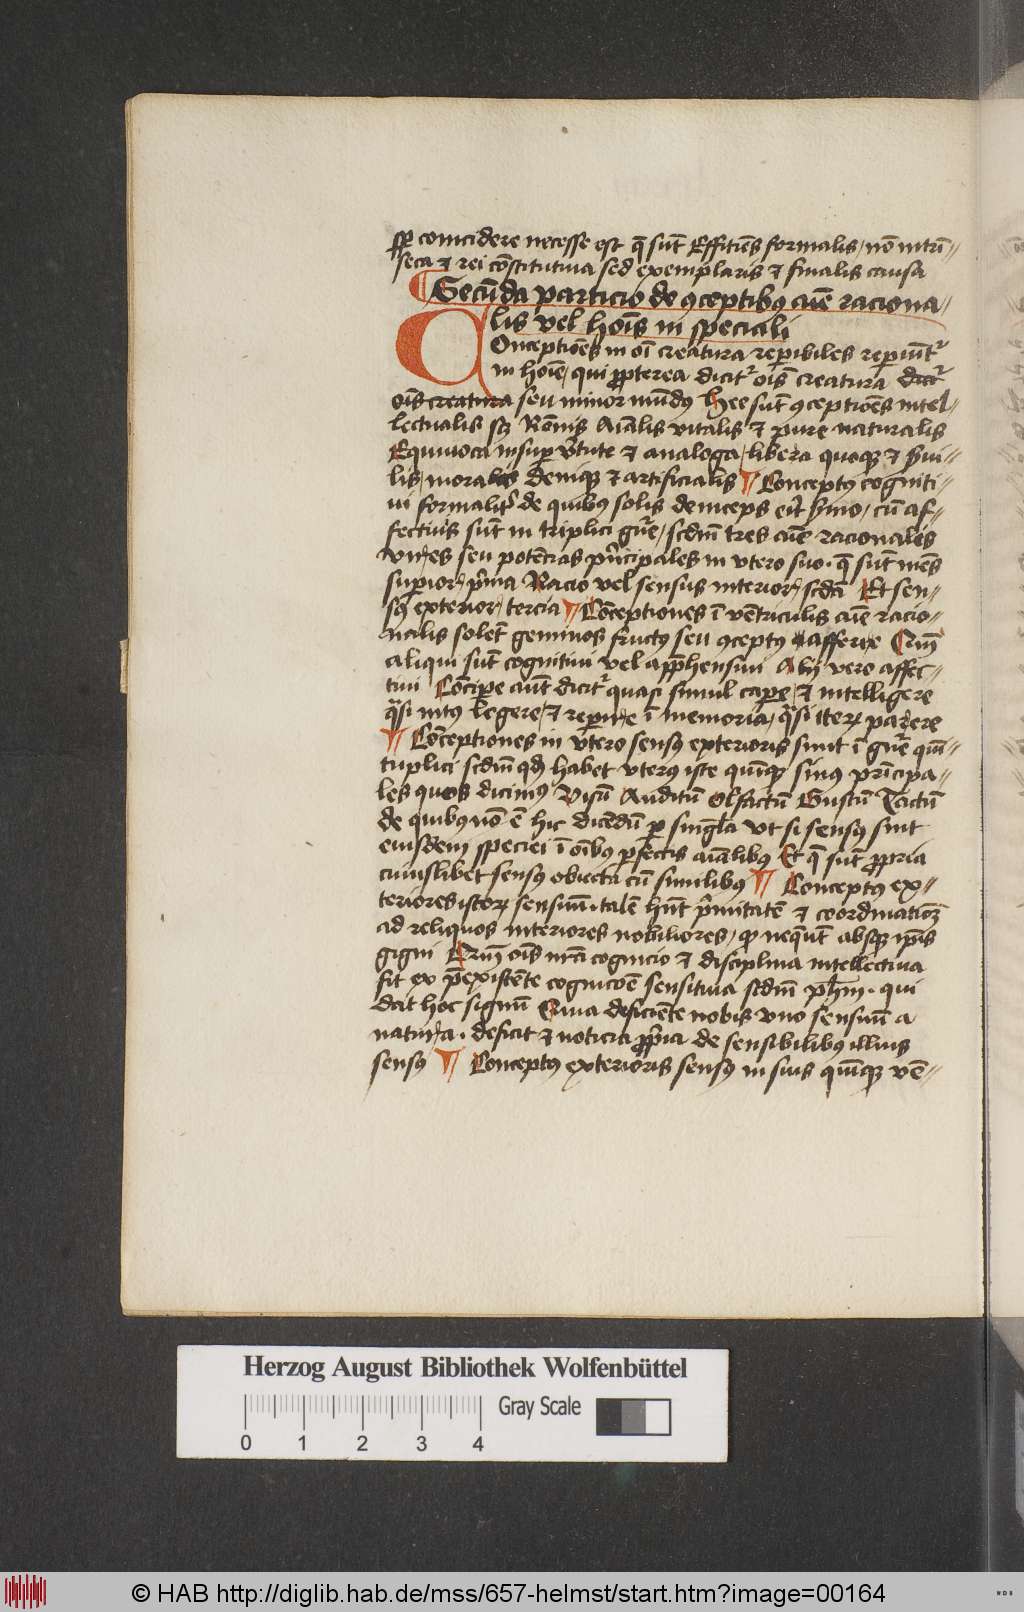 coincidere necesse est q̄ su͂t Effitie͂s formalis / no͂ intri͂=
seca et rei co͂stitutiua sed exemplaris et finalis causa
Secu͂da particio de ꝯceptibꝯ ai͂e raciona/
lis vel ho͂is in speciali
Onceptio͂es in o͂i creatura reperibiles
in ho͂ie / qui propterea dicit͛ o͂is creatura
o͂is creatura seu minor mu͂dꝯ hee su͂t ꝯceptio͂es intel=
lectualis Aia͂lis vitalis et pure naturalis
Equiuoca insuper et analoga / libera quoqꝫ et
lis / morales deniqꝫ et artificialis ¶ Conceptꝯ cogniti=
ui formalit͛ de quibꝯ solis deinceps cu͂ af=
fectiuis su͂t in triplici / scd͂m tres ai͂e racionales
seu pote͂cias pri͂cipales in vtero suo . q̄ su͂t me͂s
superior / Racio vel sensus interior / Et sen=
sꝯ exterior / tercia ¶ Co͂ceptiones i͂ ve͂triculis ai͂e racio=
nalis sole͂t geminos fructꝯ seu ꝯceptꝯ afferre
aliqui su͂t cognitiui vel appr͂hensiui Alij vero affec=
tiui Co͂cipe au͂t dicit͛ quasi simul cape / et intelligere
q͂si intꝯ legere / et i͂ memoria / q͂si
¶ Co͂ceptiones in vtero sensꝯ exterioris sunt i͂ qui͂=
tuplici scd͂m habet vterꝯ iste qui͂qꝫ sinꝯ pri͂cipa=
les quos dicimꝯ Visu͂ Auditu͂ Olfactu͂ Gustu͂ Tactu͂
de quibꝯ no͂ e͂ hic dice͂du͂ vt si sensꝯ sint
eiusdem speciei i͂ o͂ibꝯ perfectis aia͂libꝯ Et q̄ su͂t propria
cuiuslibet sensꝯ obiecta cu͂ similibꝯ ¶ Conceptꝯ ex=
teriores istoꝝ sensuu͂ . tale͂ h͂nt et
ad reliquos interiores nobiliores / absqꝫ ip͂is
gigni o͂is cognicio et disciplina intellectiua
fit ex pr͂existe͂te cognico͂e sensitiua scd͂m ph͂m . qui
dat hoc signu͂ deficie͂te nobis vno sensuu͂ a
natura . deficit et noticia propria de sensibilibꝯ illius
sensꝯ ¶ Conceptꝯ exterioris sensꝯ in suis qui͂qꝫ ve͂=
Herzog August Bibliothek Wolfenbüttel
Gray Scale
0 1 2 3 4
© HAB http://diglib.hab.de/mss/657-helmst/start.htm?image=00164